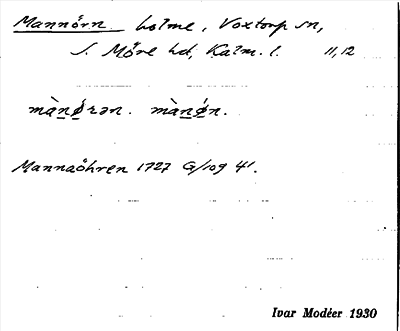 Mannörn holme, Voxtorp sn,
S. Möre hd, Kalm. l. 11,12
màṉø̱rən. màṉǿ̱n.
Mannaöhren 1727 G/109 41.
Ivar Modéer 1930